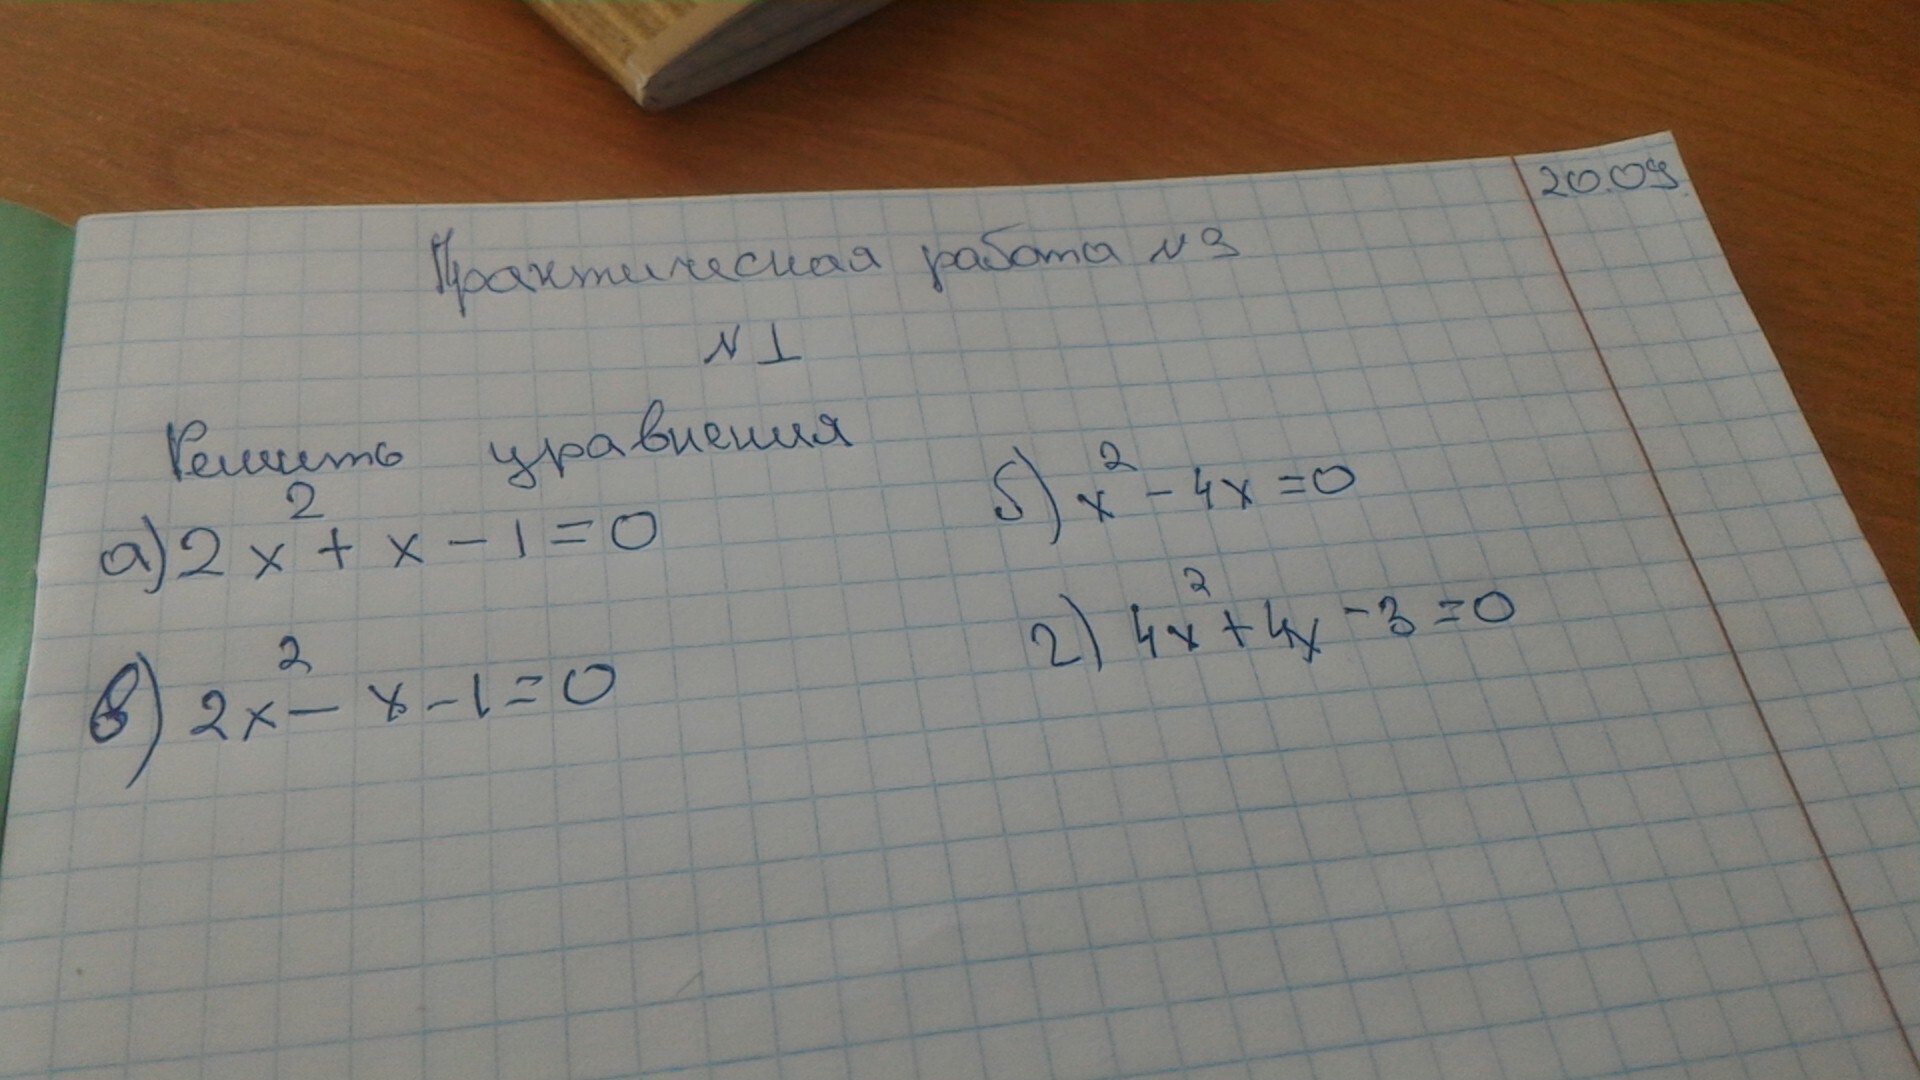 20.09.
Практическая работа N3
N1
Решить уравнения
а) 2x² + x - 1 = 0
б) x² - 4x = 0
в) 2x² - x - 1 = 0
г) 4x² + 4x - 3 = 0